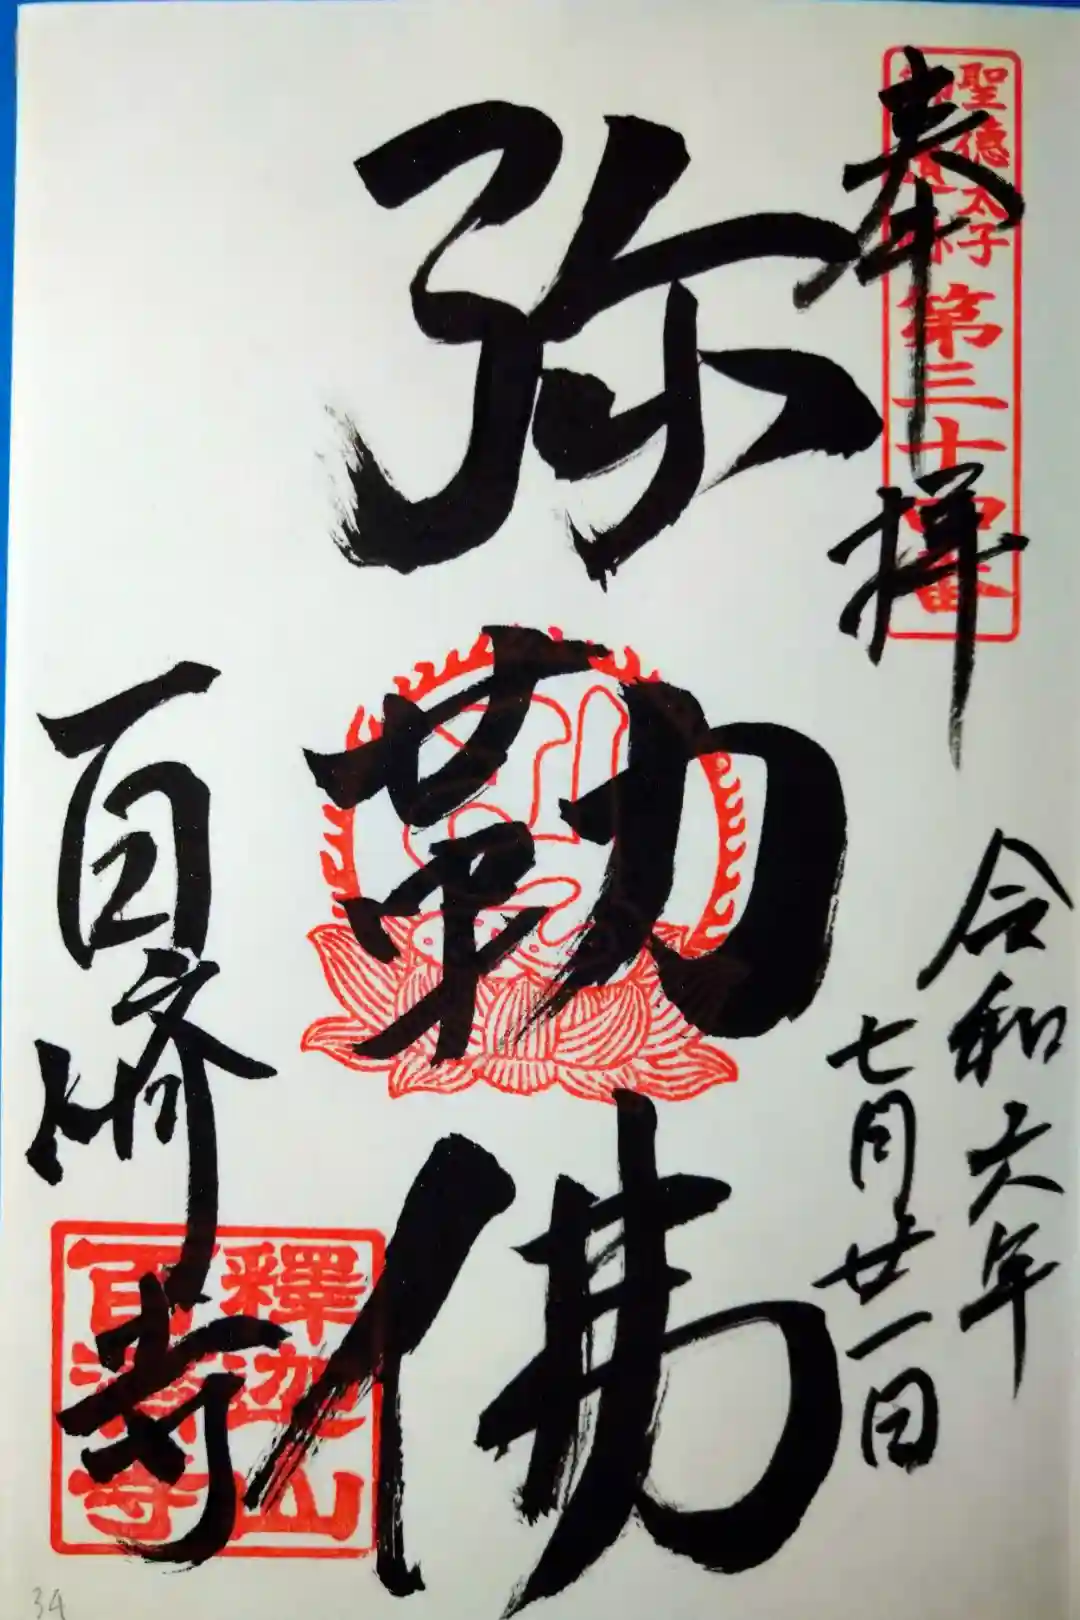 奉拝
聖徳太子
第三十四番
令和六年
七月廿一日
弥勒佛
百済寺
釋迦山
百濟寺
34